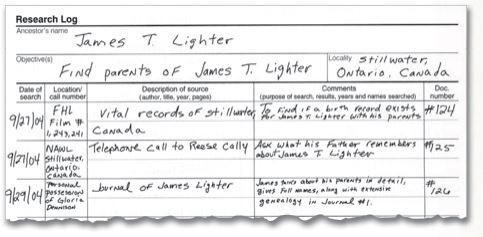 Research Log
Ancestor's name
James T. Lighter
Objective(s)
Find parents of James T. Lighter
Locality Stillwater,
Ontario, Canada
Date of search
Location/ call number
Description of source (author, title, year, pages)
Comments (purpose of search, results, years and names searched)
Doc. number
9/27/04
FHL
Film #
1,243,241
Vital records of Stillwater,
Canada
To find if a birth record exists
for James T. Lighter with his parents
#124
9/27/04
NAWL
Stillwater,
Ontario,
Canada
Telephone Call to Reese Cally
Ask what his Father remembers
about James T Lighter
#125
9/29/04
Personal
possession
of Gloria
Dennison
Journal of James Lighter
James talks about his parents in detail,
gives Full names, along with extensive
genealogy in Journal #1.
#
126